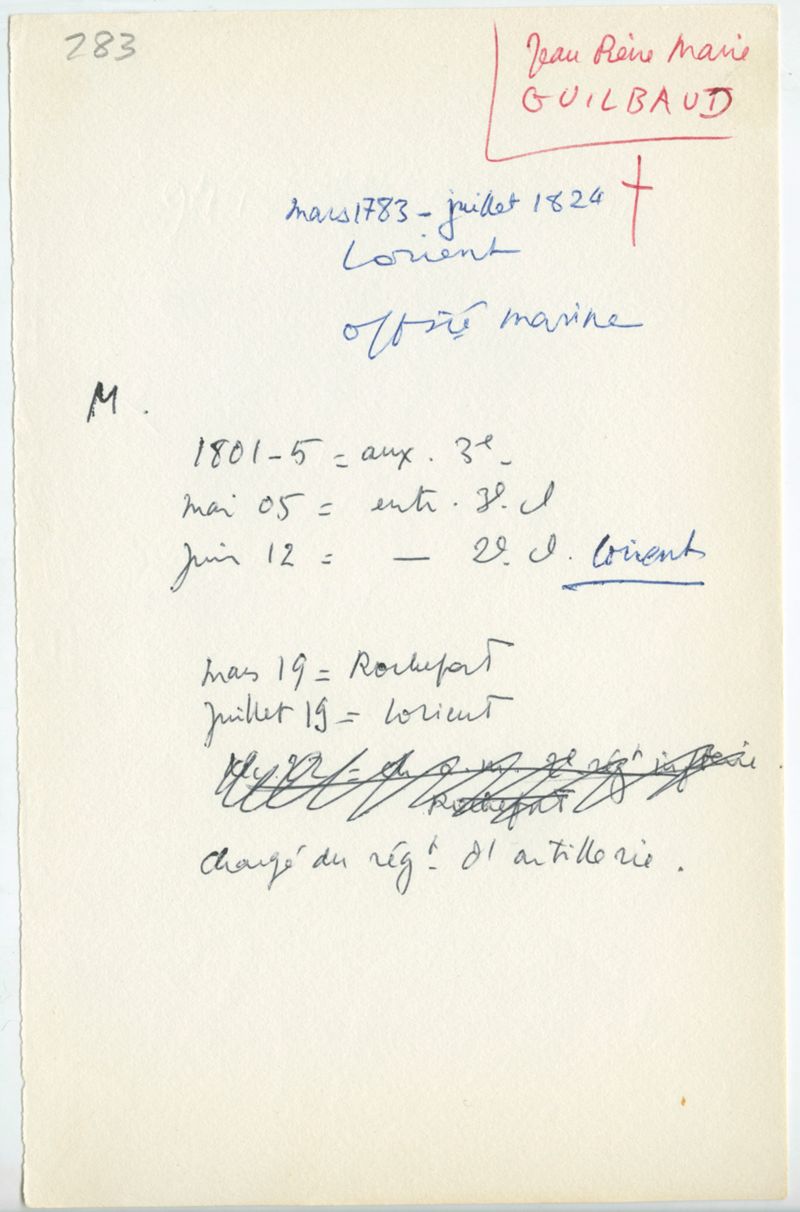 283
Jean Pierre Marie
GUILBAUD
mars 1783 - juillet 1824
Lorient
marine
M.
1801-5 = aux. 3e
mai 05 = entr. 3e. cl
Juin 12 = — 2e. cl. Lorient
mars 19 = Rochefort
Juillet 19 = Lorient
Rochefort
chargé du régt. d'artillerie.